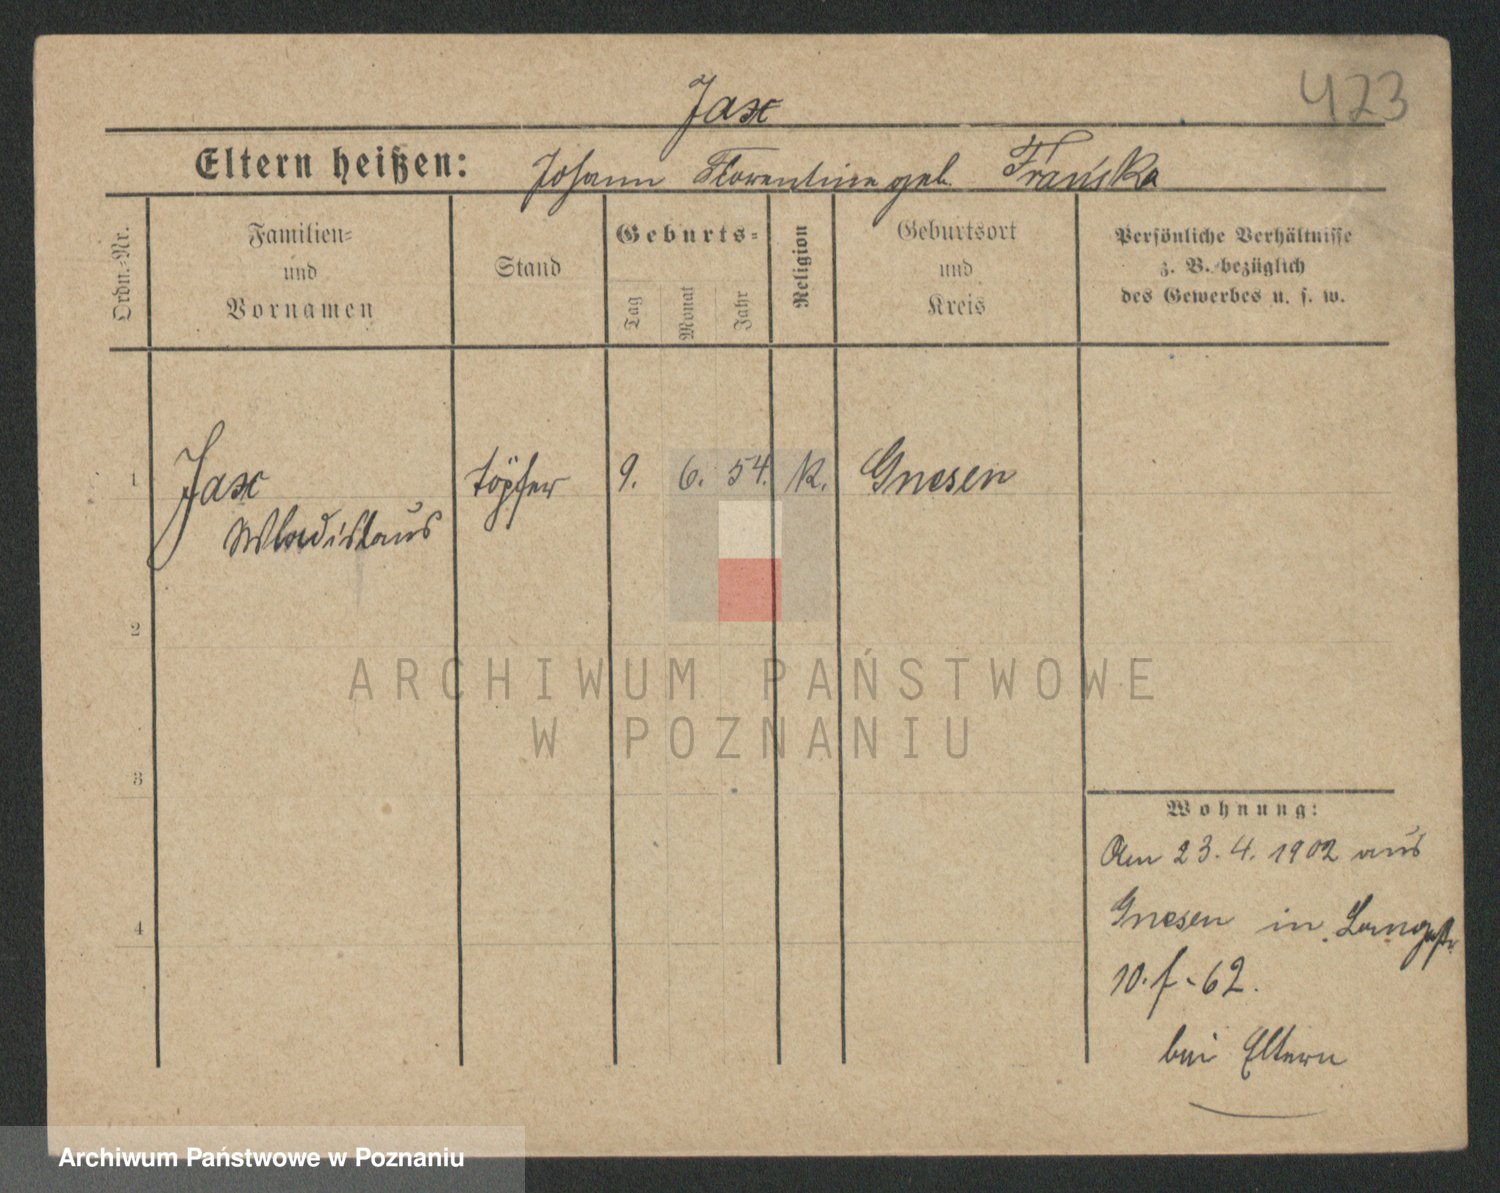 423
Jax
Eltern heißen: Johann Florentine geb. Frańska
Ordn.-Nr.
Familien-
und
Vornamen
Stand
Geburts-
Tag
Monat
Jahr
Religion
Geburtsort
und
Kreis
Persönliche Verhältnisse
z. B. bezüglich
des Gewerbes u. s. w.
1 Jax töpfer 9. 6. 54. K. Gnesen
Wladislaus
2
ARCHIWUM PAŃSTWOWE
W POZNANIU
3
Wohnung:
Am 23. 4. 1902 aus
4
Gnesen in Langestr
10. f - 62.
bei Eltern
Archiwum Państwowe w Poznaniu